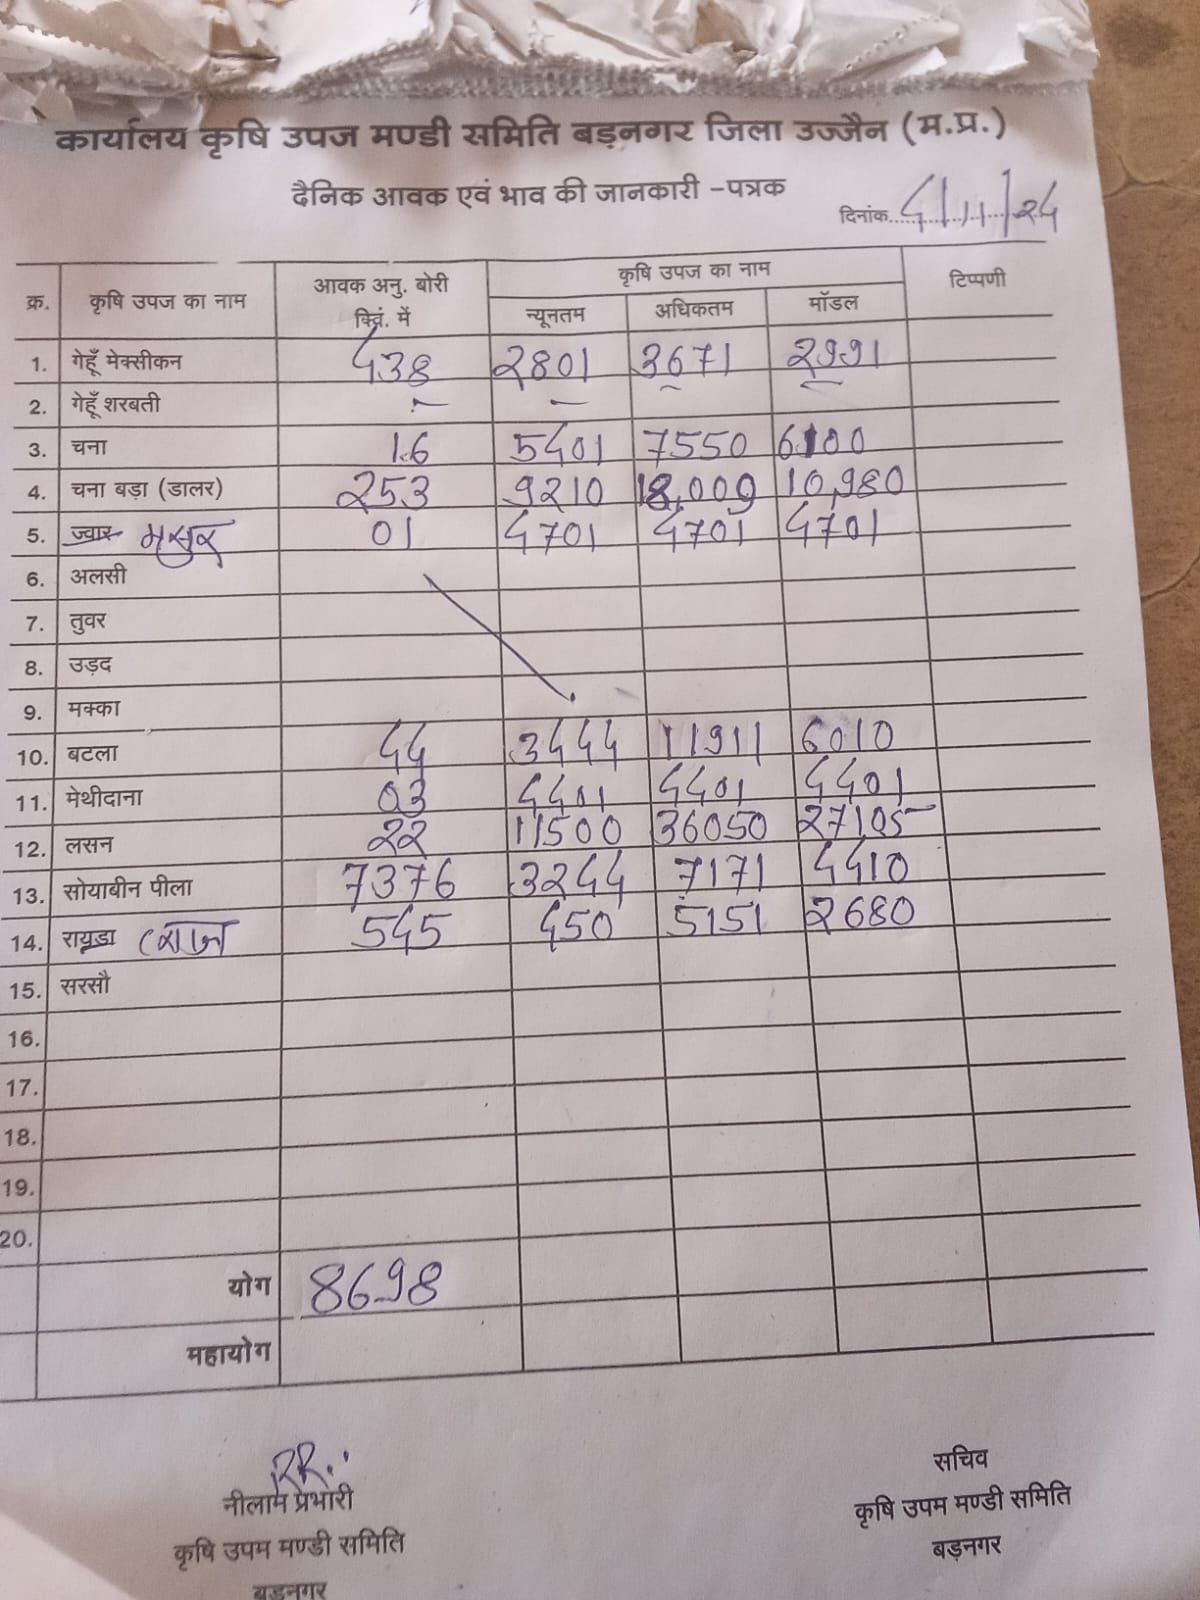 कार्यालय कृषि उपज मण्डी समिति बड़नगर जिला उज्जैन (म.प्र.)
दैनिक आवक एवं भाव की जानकारी -पत्रक
दिनांक 4/11/24
क्र. कृषि उपज का नाम आवक अनु. बोरी क्विं. में कृषि उपज का नाम टिप्पणी
न्यूनतम अधिकतम मॉडल
1. गेहूँ मेक्सीकन 438 2801 3671 2991
2. गेहूँ शरबती - -
3. चना 16 5401 7550 6100
4. चना बड़ा (डालर) 253 9210 10,980
5. ज्वार मसुर 01 4701 4701 4701
6. अलसी
7. तुवर
8. उड़द
9. मक्का
10. बटला 44 3444 11911 6010
11. मेथीदाना 03 4401 4401 4401
12. लसन 22 11500 36050 27105
13. सोयाबीन पीला 7376 3244 7171 4410
14. रायडा 545 450 5151 2680
15. सरसौ
16.
17.
18.
19.
20.
योग 8698
महायोग
RR.
नीलाम प्रभारी
कृषि उपम मण्डी समिति
बड़नगर
सचिव
कृषि उपम मण्डी समिति
बड़नगर